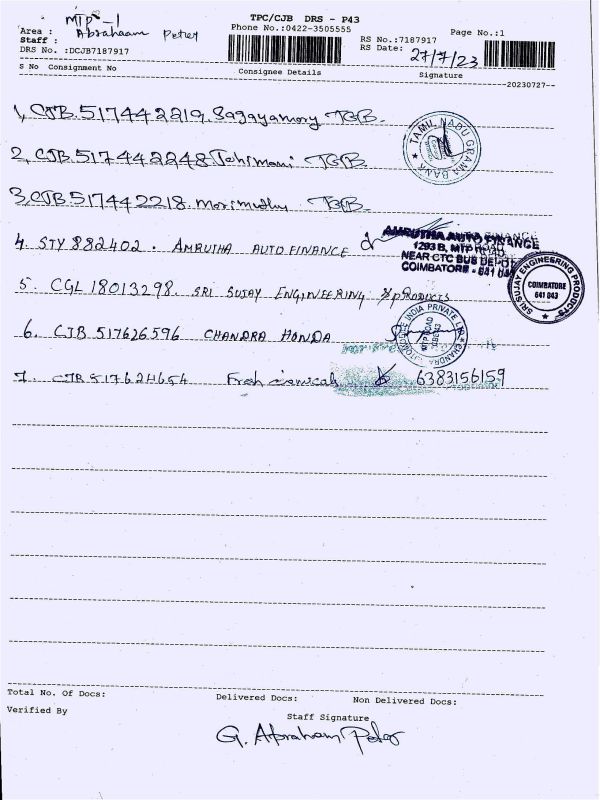 TPC/CJB DRS - P43
Area : MTP - 1
Phone No.:0422-3505555
Page No.:1
Staff : Abrahaam Peter
RS No.:7187917
DRS No. :DCJB7187917
RS Date: 27/7/23
S No Consignment No Consignee Details Signature
--20230727--
1, CJB.517442219. Sagayamary TGB.
2, CJB.517442248. TGB.
3, CJB.517442218. Marimuthu TGB.
TAMIL NADU GRAMA BANK
4. STY 882402. AMRUTHA AUTO FINANCE
AMRUTHA AUTO FINANCE
1293 B, MTP ROAD
NEAR CTC BUS DEPOT
COIMBATORE - 641 043
5. CGL 18013298. SRI SUJAY ENGINEERING PRODUCTS
SRI SUJAY ENGINEERING PRODUCTS
COIMBATORE
641 043
6. CJB 517626596 CHANDRA HONDA
INDIA PRIVATE
MTP ROAD
CHANDRA
7. CJB 517624654 Fresh 6383156159
Total No. Of Docs: Delivered Docs: Non Delivered Docs:
Verified By
Staff Signature
G. Abraham Peter